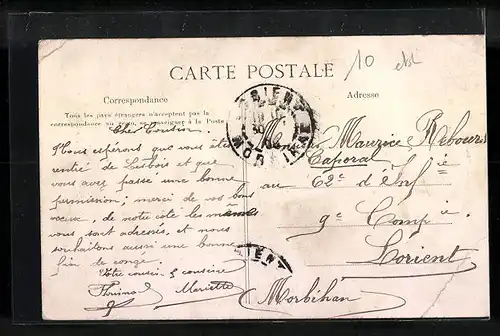 10
CARTE POSTALE
Correspondance
Adresse
Tous les pays étrangers n'acceptent pas la
correspondance au recto, se renseigner à la Poste
Cher Cousin
Nous espérons que vous ête
rentré de et que
vous avez passé une bonne
permission; merci de vos bons
voeux, de notre côté les mêmes
vous sont adressés, et nous
souhaitons aussi une bonne
fin de congé.
Votre cousin & cousine
Mariette
LORIENT
MORBIHAN
Monsieur Maurice Rebours
Caporal
au 62e d'Inf ie
9e Comp ie
Lorient
Morbihan